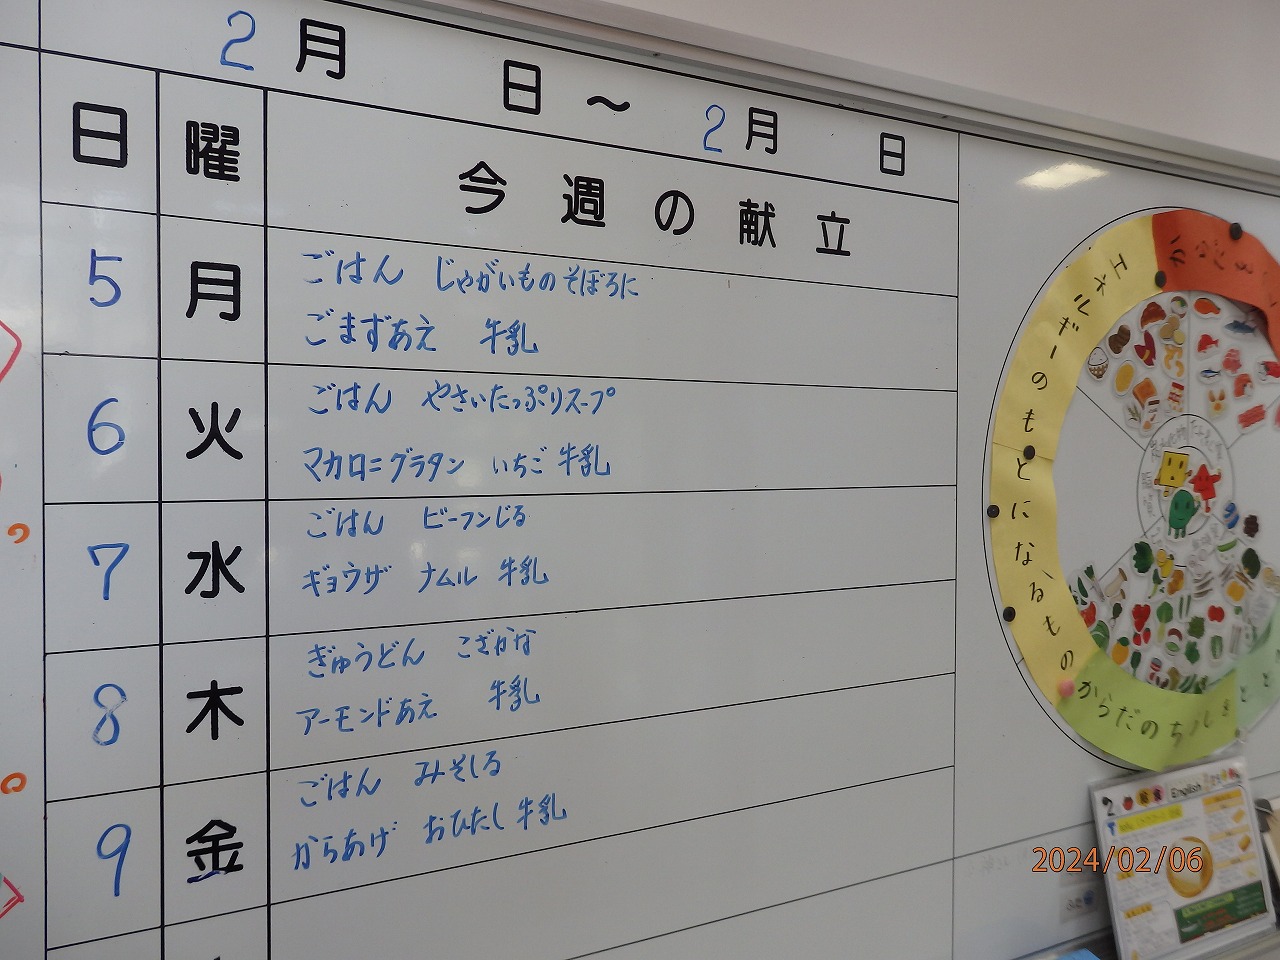 2月 日～2月 日
日 曜 今週の献立
5 月 ごはん じゃがいものそぼろに
ごまずあえ 牛乳
6 火 ごはん やさいたっぷりスープ
マカロニグラタン いちご 牛乳
7 水 ごはん ビーフンじる
ギョウザ ナムル 牛乳
8 木 ぎゅうどん こざかな
アーモンドあえ 牛乳
9 金 ごはん みそしる
からあげ おひたし 牛乳
エネルギーのもとになるもの
からだのちょうしを
2 給食 English
2024/02/06